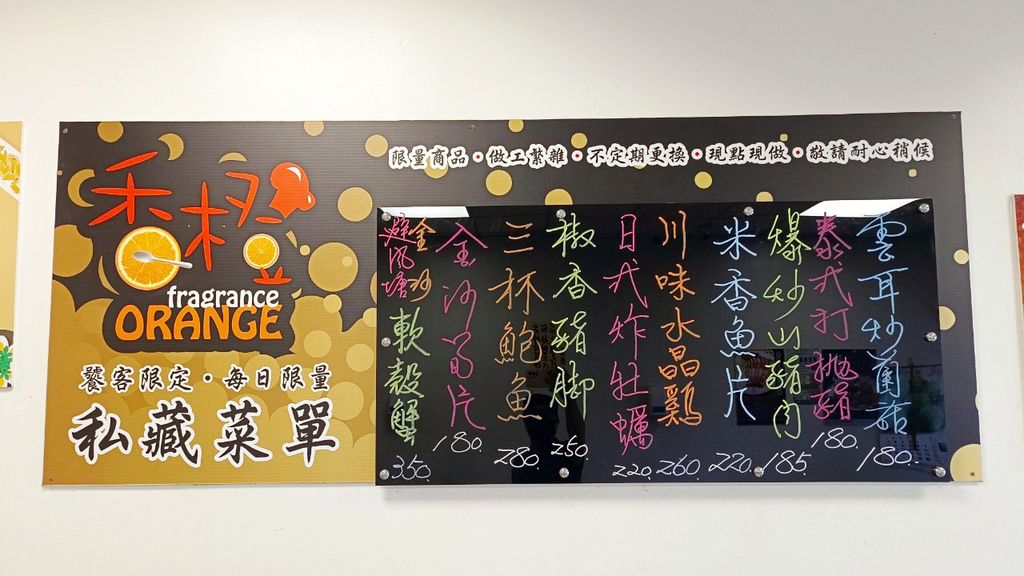 香橙
fragrance
ORANGE
饕客限定・每日限量
私藏菜單
限量商品・做工繁雜・不定期更換・現點現做・敬請耐心稍候
雲耳炒菌菇 180.
泰式打拋豬 180.
爆炒山豬肉 185
米香魚片 220.
川味水晶雞 260.
日式炸牡蠣 220.
椒香豬腳 250.
三杯鮑魚 280.
金沙筍片 180.
金沙
避風塘
軟殼蟹 350.